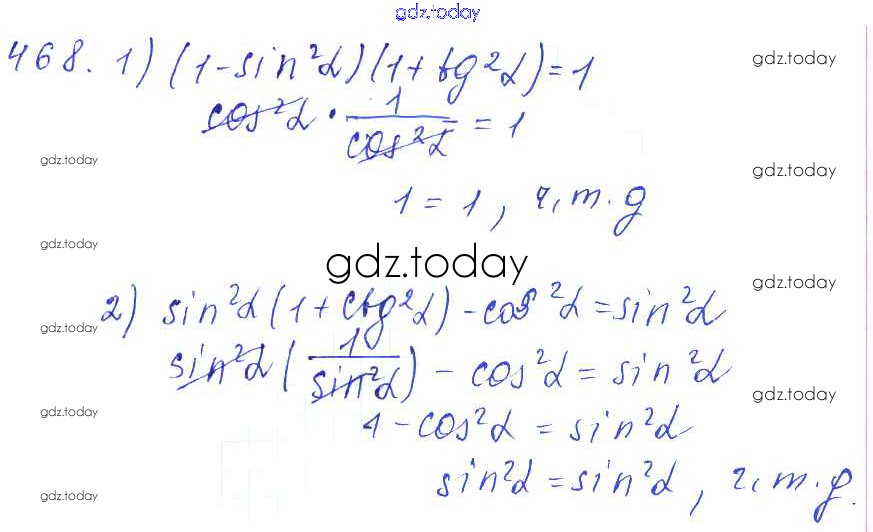 gdz.today
468. 1) (1-sin²α)(1+tg²α)=1
gdz.today
cos²α · 1/cos²α = 1
gdz.today
gdz.today
1 = 1, ч.т.д
gdz.today
gdz.today
gdz.today
2) sin²α(1+ctg²α)-cos²α=sin²α
gdz.today
sin²α(1/sin²α) - cos²α = sin²α
gdz.today
gdz.today
1-cos²α = sin²α
sin²α = sin²α, ч.т.д.
gdz.today